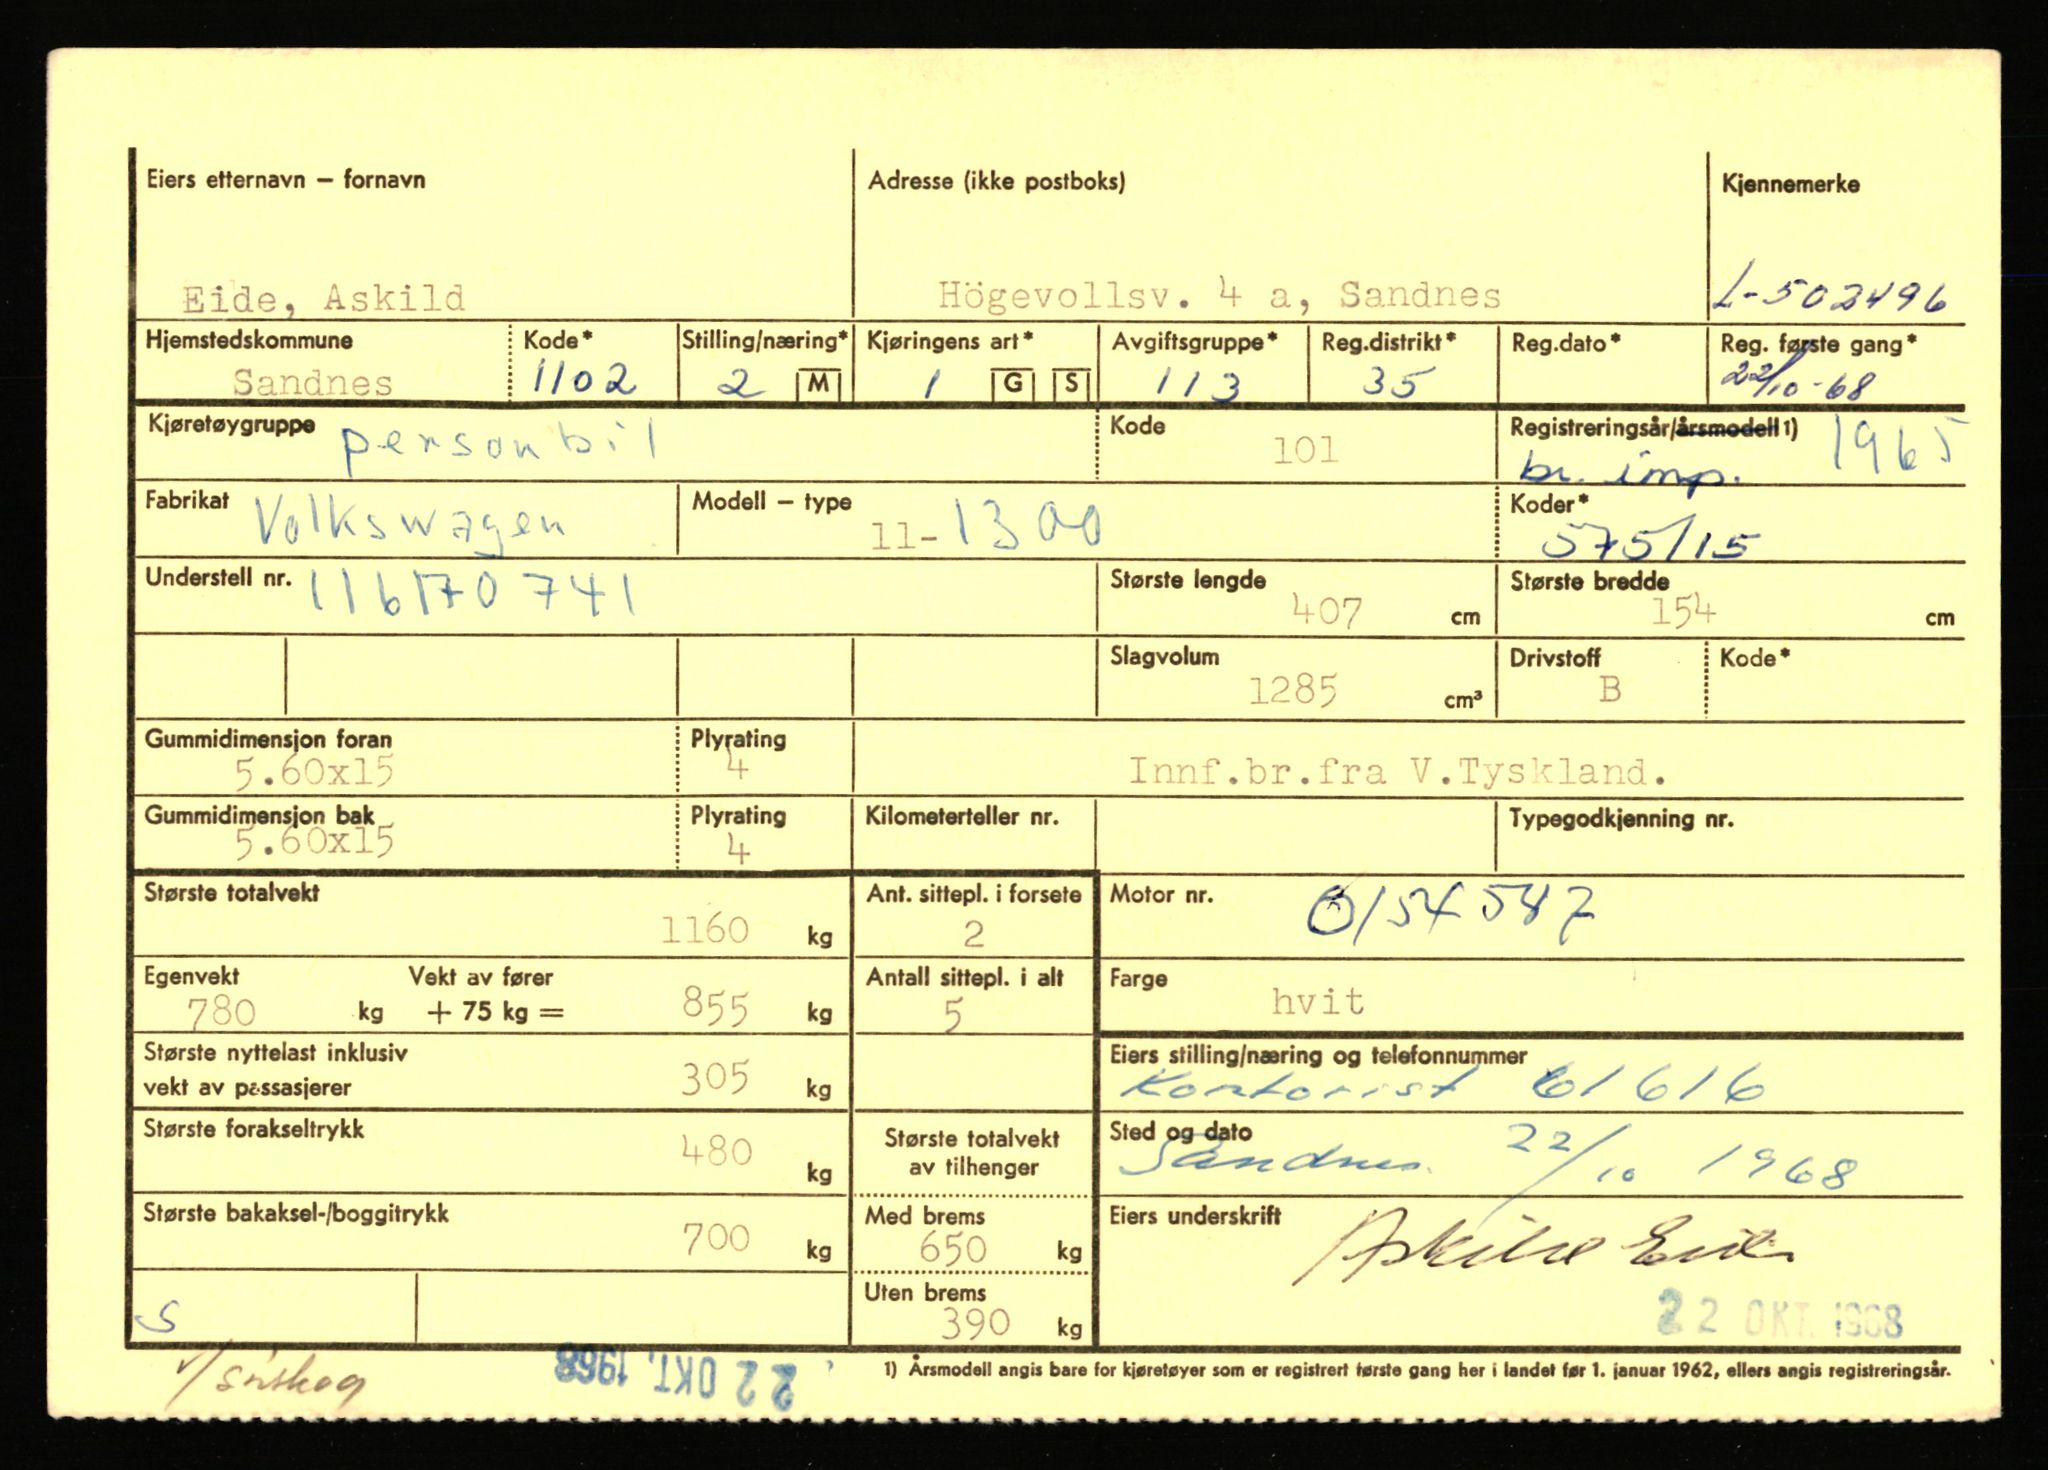 Eiers etternavn – fornavn
Adresse (ikke postboks)
Kjennemerke
Eide, Askild
Högevollsv. 4 a, Sandnes
L-502496
Hjemstedskommune
Kode*
Stilling/næring*
Kjøringens art*
Avgiftsgruppe*
Reg.distrikt*
Reg.dato*
Reg. første gang*
Sandnes
1102
2 M
1 G S
113
35
22/10-68
Kjøretøygruppe
personbil
Kode
101
Registreringsår/årsmodell 1)
1965
br. imp.
Fabrikat
Volkswagen
Modell – type
11-1300
Koder*
575/15
Understell nr.
116170741
Største lengde
407 cm
Største bredde
154 cm
Slagvolum
1285 cm³
Drivstoff
B
Kode*
Gummidimensjon foran
5.60x15
Plyrating
4
Innf.br.fra V.Tyskland.
Gummidimensjon bak
5.60x15
Plyrating
4
Kilometerteller nr.
Typegodkjenning nr.
Største totalvekt
1160 kg
Ant. sittepl. i forsete
2
Motor nr.
0154547
Egenvekt
780 kg
Vekt av fører
+ 75 kg =
855 kg
Antall sittepl. i alt
5
Farge
hvit
Største nyttelast inklusiv
vekt av passasjerer
305 kg
Eiers stilling/næring og telefonnummer
Kontorist 61616
Største forakseltrykk
480 kg
Største totalvekt
av tilhenger
Sted og dato
Sandnes 22/10 1968
Største bakaksel-/boggitrykk
700 kg
Med brems
650 kg
Eiers underskrift
Askild Eide
Uten brems
390 kg
S
22 OKT. 1968
22 OKT. 1968
1) Årsmodell angis bare for kjøretøyer som er registrert første gang her i landet før 1. januar 1962, ellers angis registreringsår.